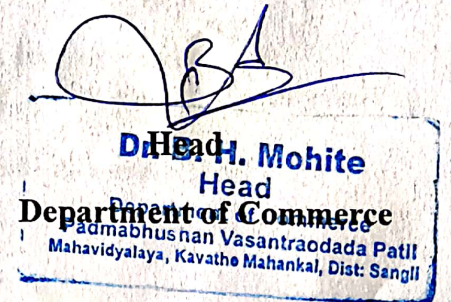 Dr. B. H. Mohite
Head
Head
Department of Commerce
Department of Commerce
Padmabhushan Vasantraodada Patil
Mahavidyalaya, Kavathe Mahankal, Dist: Sangli